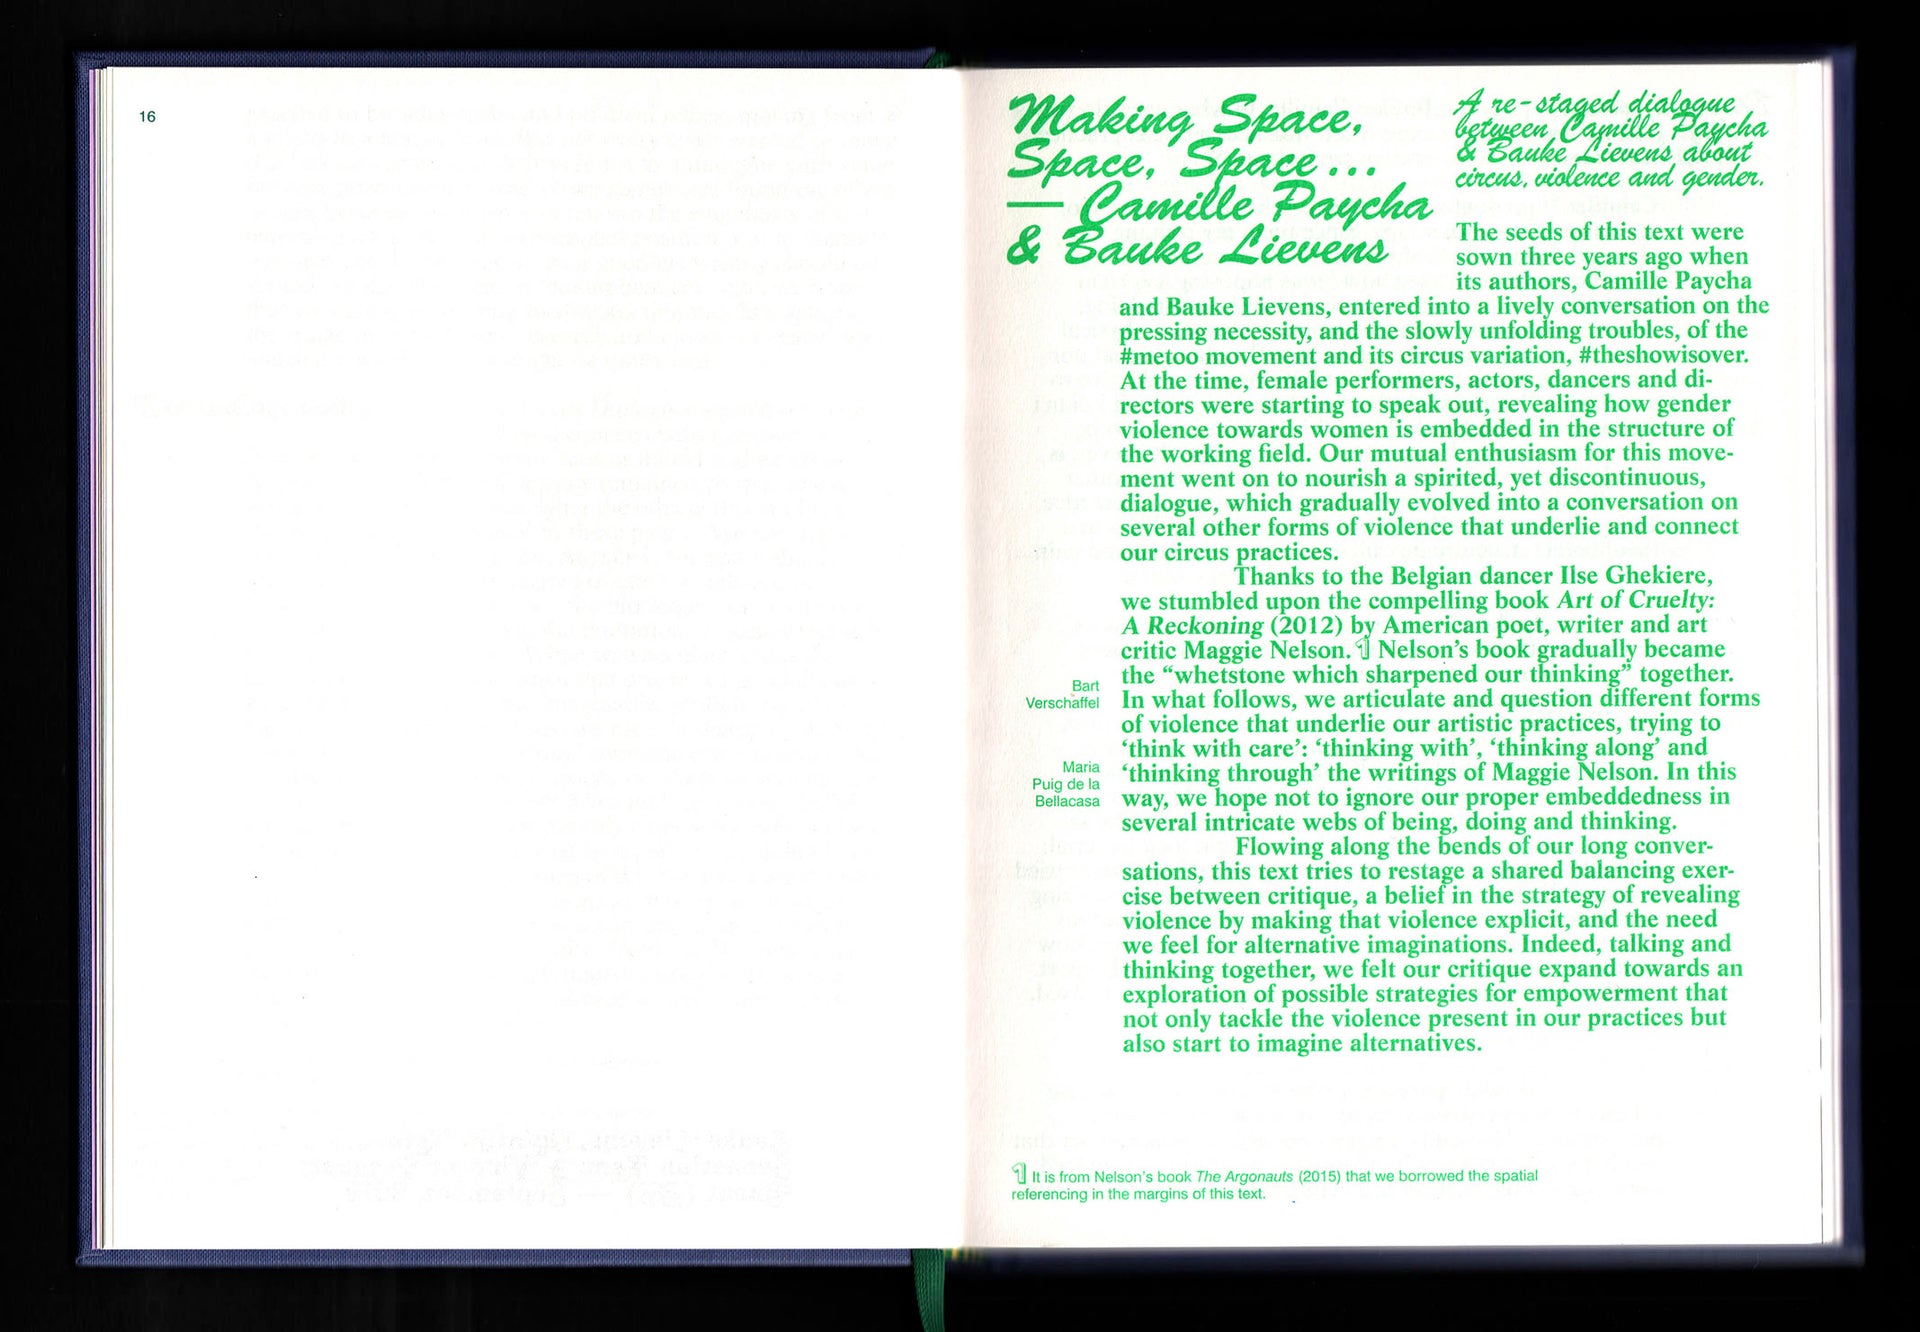 16
Making Space,
Space, Space ...
— Camille Paycha
& Bauke Lievens
A re-staged dialogue
between Camille Paycha
& Bauke Lievens about
circus, violence and gender.
The seeds of this text were
sown three years ago when
its authors, Camille Paycha
and Bauke Lievens, entered into a lively conversation on the
pressing necessity, and the slowly unfolding troubles, of the
#metoo movement and its circus variation, #theshowisover.
At the time, female performers, actors, dancers and di-
rectors were starting to speak out, revealing how gender
violence towards women is embedded in the structure of
the working field. Our mutual enthusiasm for this move-
ment went on to nourish a spirited, yet discontinuous,
dialogue, which gradually evolved into a conversation on
several other forms of violence that underlie and connect
our circus practices.
Thanks to the Belgian dancer Ilse Ghekiere,
we stumbled upon the compelling book Art of Cruelty:
A Reckoning (2012) by American poet, writer and art
critic Maggie Nelson. 1 Nelson’s book gradually became
the “whetstone which sharpened our thinking” together.
In what follows, we articulate and question different forms
of violence that underlie our artistic practices, trying to
‘think with care’: ‘thinking with’, ‘thinking along’ and
‘thinking through’ the writings of Maggie Nelson. In this
way, we hope not to ignore our proper embeddedness in
several intricate webs of being, doing and thinking.
Flowing along the bends of our long conver-
sations, this text tries to restage a shared balancing exer-
cise between critique, a belief in the strategy of revealing
violence by making that violence explicit, and the need
we feel for alternative imaginations. Indeed, talking and
thinking together, we felt our critique expand towards an
exploration of possible strategies for empowerment that
not only tackle the violence present in our practices but
also start to imagine alternatives.
Bart
Verschaffel
Maria
Puig de la
Bellacasa
1 It is from Nelson’s book The Argonauts (2015) that we borrowed the spatial
referencing in the margins of this text.